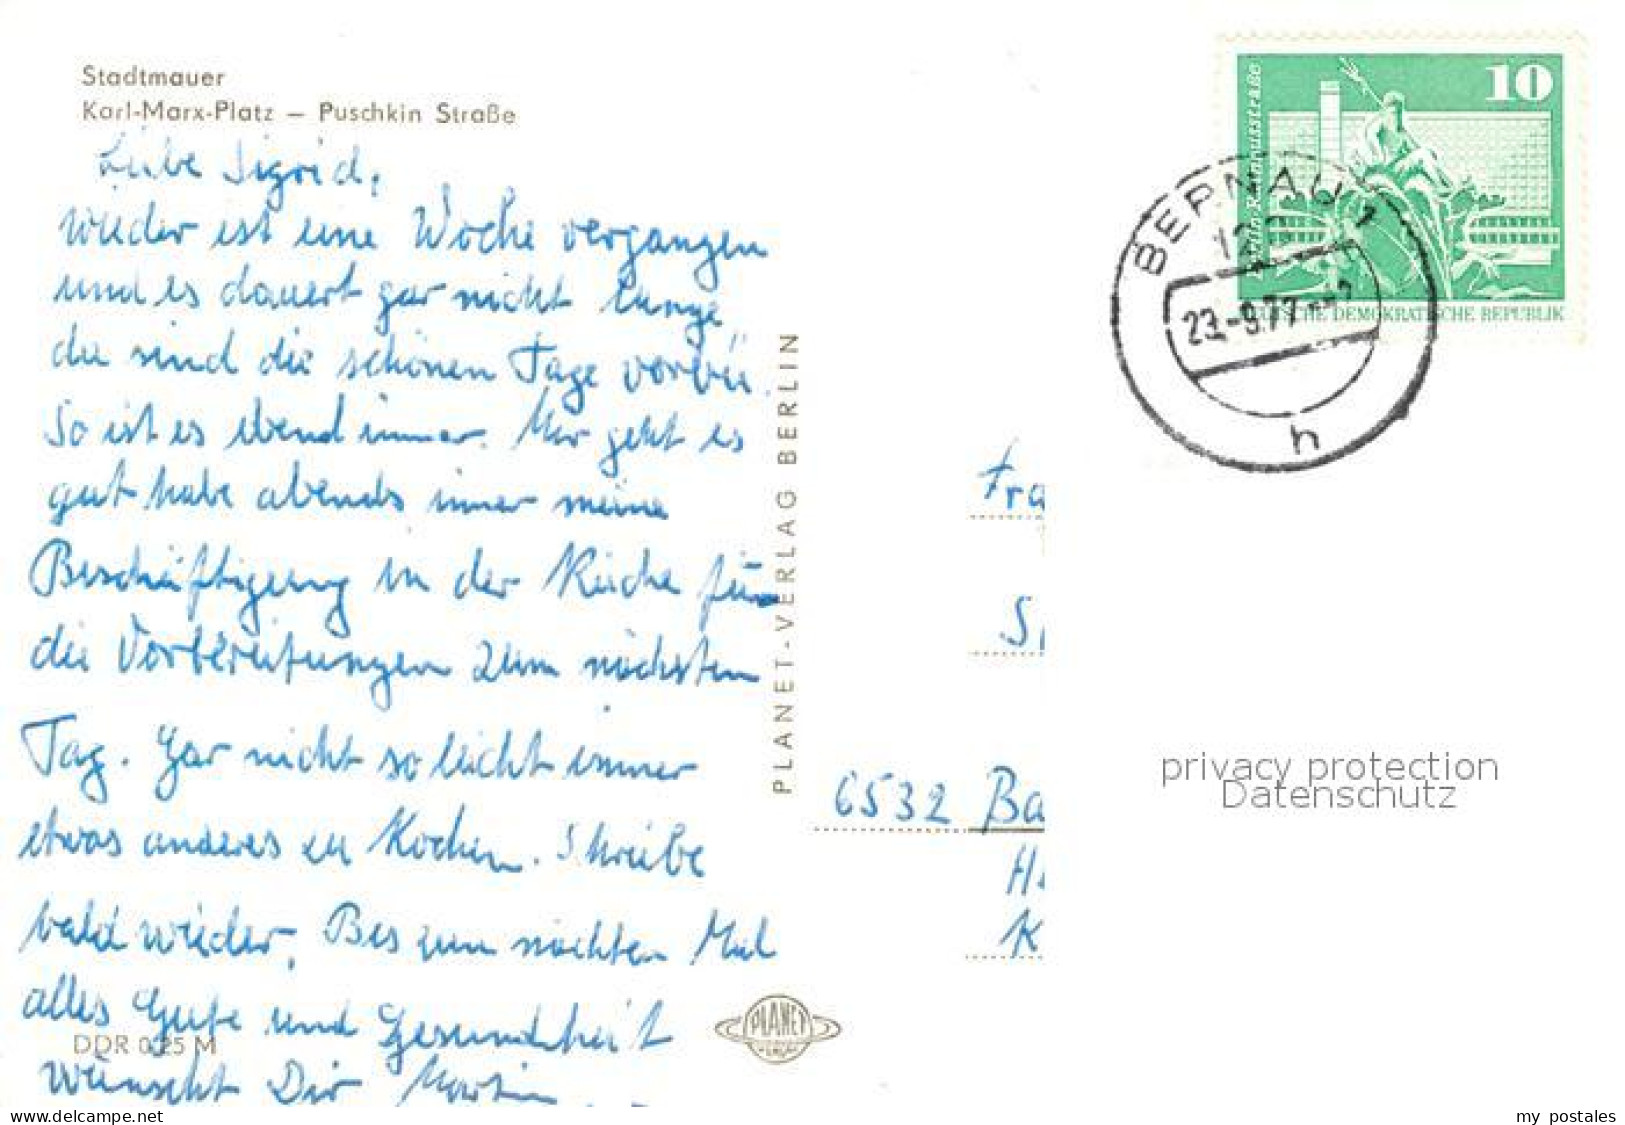 Stadtmauer
Karl-Marx-Platz – Puschkin Straße
Liebe Sigrid,
wieder ist eine Woche vergangen
und es dauert gar nicht lange,
da sind die schönen Tage vorbei.
So ist es eben immer. Mir geht es
gut habe abends immer meine
Beschäftigung in der Küche für
die Vorbereitungen zum nächsten
Tag. Gar nicht so leicht immer
etwas anderes zu Kochen. Schreibe
bald wieder, Bis zum nächten Mal
alles Gute und Gesundheit
Wünscht Dir Martin
DDR 0,25 M
PLANET-VERLAG BERLIN
PLANET
VERLAG
10
DEUTSCHE DEMOKRATISCHE REPUBLIK
BERNAU 1
23.-9.77
h
Fra
6532 Ba
K
privacy protection
Datenschutz
www.delcampe.net
my_postales